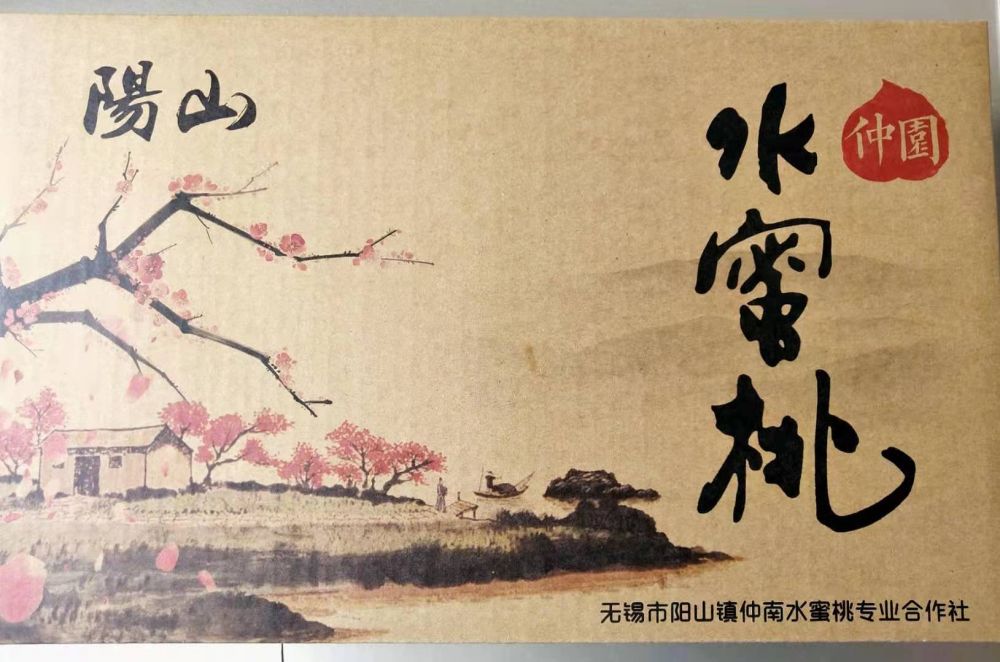 陽山
水蜜桃
仲園
无锡市阳山镇仲南水蜜桃专业合作社